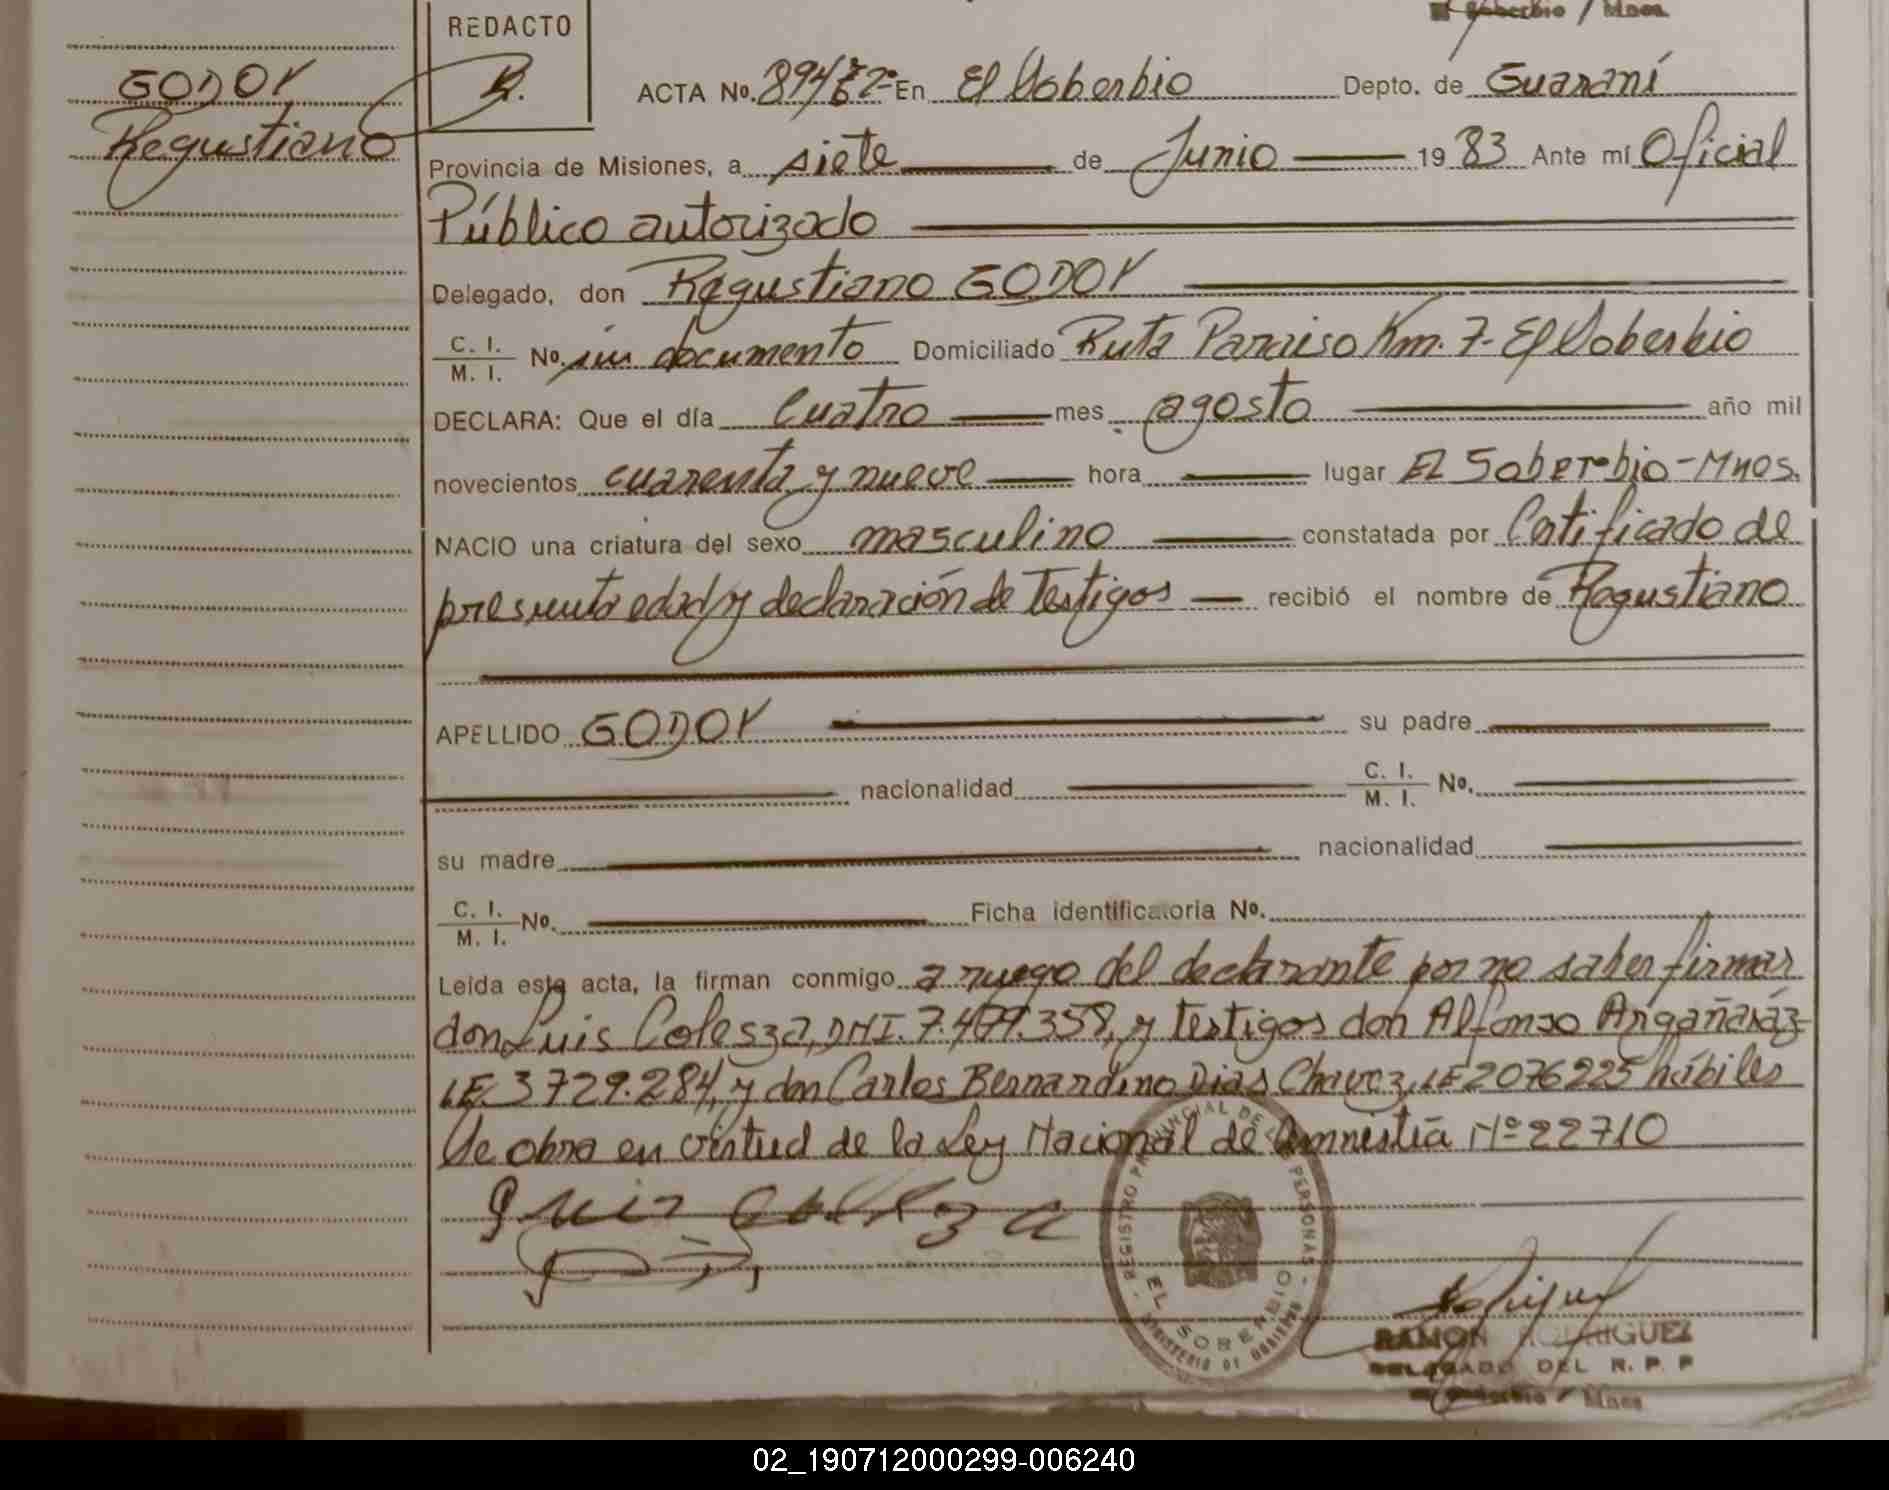 El Soberbio / Mnes.
REDACTO
GODOY
Regustiano
R.
ACTA No. En El Soberbio Depto. de Guaraní
Provincia de Misiones, a siete de Junio 1983 Ante mí Oficial
Público autorizado
Delegado, don Regustiano GODOY
C. I. / M. I. No. sin documento Domiciliado Ruta Paraiso Km. 7- El Soberbio
DECLARA: Que el día cuatro mes agosto año mil
novecientos cuarenta y nueve hora lugar EL Soberbio-Mnes.
NACIO una criatura del sexo masculino constatada por Certificado de
presunta edad y declaración de testigos recibió el nombre de Regustiano
APELLIDO GODOY su padre
nacionalidad C. I. / M. I. No.
su madre nacionalidad
C. I. / M. I. No. Ficha identificatoria No.
Leída esta acta, la firman conmigo a ruego del declarante por no saber firmar
don Luis Colesza, DNI. 7.479.358, y testigos don Alfonso Argañaráz
LE. 3729.284, y don Carlos Bernardino Dias Chavez, LE 2076225 hábiles
Se obra en virtud de la Ley Nacional de Amnistía Nº 22710
Luis Colesza
REGISTRO PROVINCIAL DE LAS PERSONAS
EL SOBERBIO
MINISTERIO DE GOBIERNO
RAMON RODRIGUEZ
DELEGADO DEL R. P. P
El Soberbio / Mnes
02_190712000299-006240